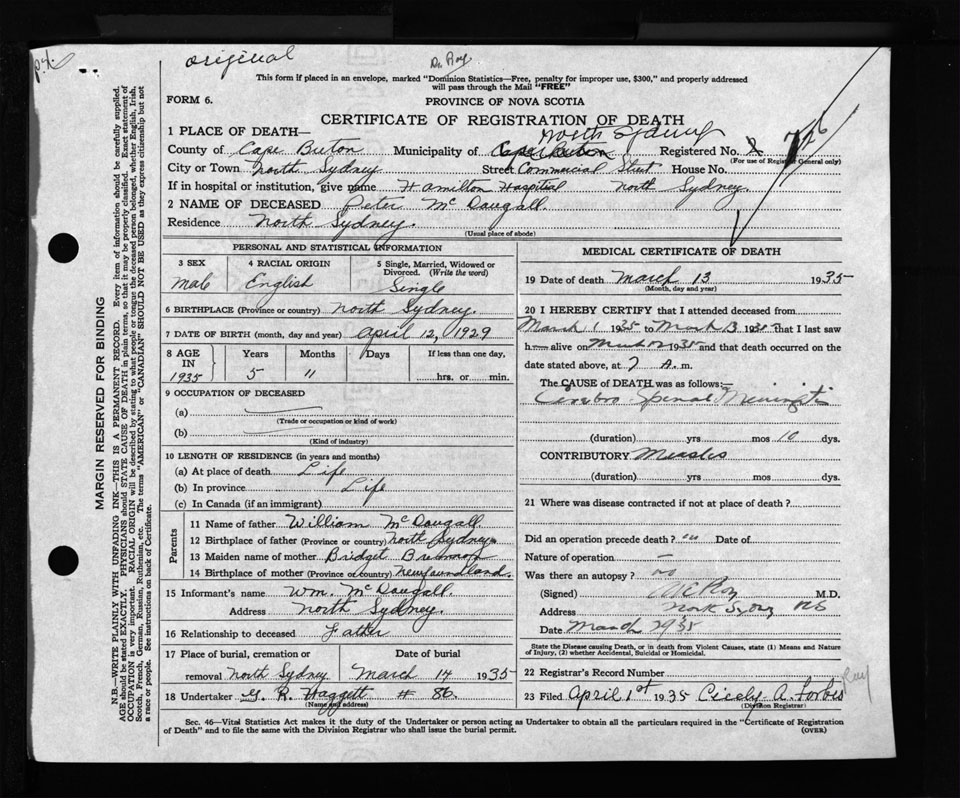 original
Dr. Roy
This form if placed in an envelope, marked "Dominion Statistics—Free, penalty for improper use, $300," and properly addressed
will pass through the Mail "FREE"
FORM 6.
PROVINCE OF NOVA SCOTIA
CERTIFICATE OF REGISTRATION OF DEATH
1 PLACE OF DEATH—
North Sydney
County of Cape Breton Municipality of Cape Breton Registered No.
(For use of Registrar General only)
City or Town North Sydney Street Commercial Street House No.
If in hospital or institution, give name Hamilton Hospital North Sydney.
2 NAME OF DECEASED Peter McDougall.
Residence North Sydney.
(Usual place of abode)
PERSONAL AND STATISTICAL INFORMATION
3 SEX 4 RACIAL ORIGIN 5 Single, Married, Widowed or Divorced. (Write the word)
Male English Single
6 BIRTHPLACE (Province or country) North Sydney.
7 DATE OF BIRTH (month, day and year) April 12, 1929
8 AGE IN 1935 Years Months Days If less than one day,
5 11 hrs. or min.
9 OCCUPATION OF DECEASED
(a)
(Trade or occupation or kind of work)
(b)
(Kind of industry)
10 LENGTH OF RESIDENCE (in years and months)
(a) At place of death Life
(b) In province Life
(c) In Canada (if an immigrant)
Parents
11 Name of father William McDougall
12 Birthplace of father (Province or country) North Sydney
13 Maiden name of mother Bridget
14 Birthplace of mother (Province or country) Newfoundland.
15 Informant's name Wm. McDougall.
Address North Sydney.
16 Relationship to deceased Father
17 Place of burial, cremation or removal North Sydney. Date of burial March 14 1935
18 Undertaker G. R. Waggett # 86.
(Name and address)
MEDICAL CERTIFICATE OF DEATH
19 Date of death March 13 1935
(Month, day and year)
20 I HEREBY CERTIFY that I attended deceased from
March 1 1935 to March 13 1935 that I last saw
h— alive on March 12 1935 and that death occurred on the
date stated above, at 7 A. m.
The CAUSE of DEATH was as follows:—
Cerebro Spinal Meningitis
(duration) yrs mos 10 dys.
CONTRIBUTORY Measles
(duration) yrs. mos dys.
21 Where was disease contracted if not at place of death?
Did an operation precede death? no Date of
Nature of operation —
Was there an autopsy? no
(Signed) Roy M.D.
Address North Sydney NS
Date March 1935
State the Disease causing Death, or in death from Violent Causes, state (1) Means and Nature of Injury, (2) whether Accidental, Suicidal or Homicidal.
22 Registrar's Record Number
23 Filed April 1st 1935 Cicely A. Forbes
(Division Registrar)
Sec. 46—Vital Statistics Act makes it the duty of the Undertaker or person acting as Undertaker to obtain all the particulars required in the "Certificate of Registration
of Death" and to file the same with the Division Registrar who shall issue the burial permit.
(OVER)
MARGIN RESERVED FOR BINDING
N.B.—WRITE PLAINLY WITH UNFADING INK—THIS IS A PERMANENT RECORD. Every item of information should be carefully supplied.
AGE should be stated EXACTLY. PHYSICIANS should STATE CAUSE OF DEATH in plain terms, so that it may be properly classified. Exact statement of
OCCUPATION is very important. RACIAL ORIGIN will be described by stating to what people or tongue the deceased person belonged, whether English, Irish,
Scotch, French, German, Russian, Ruthenian, etc. The terms "AMERICAN" or "CANADIAN" SHOULD NOT BE USED as they express citizenship but not
a race or people. See instructions on back of Certificate.